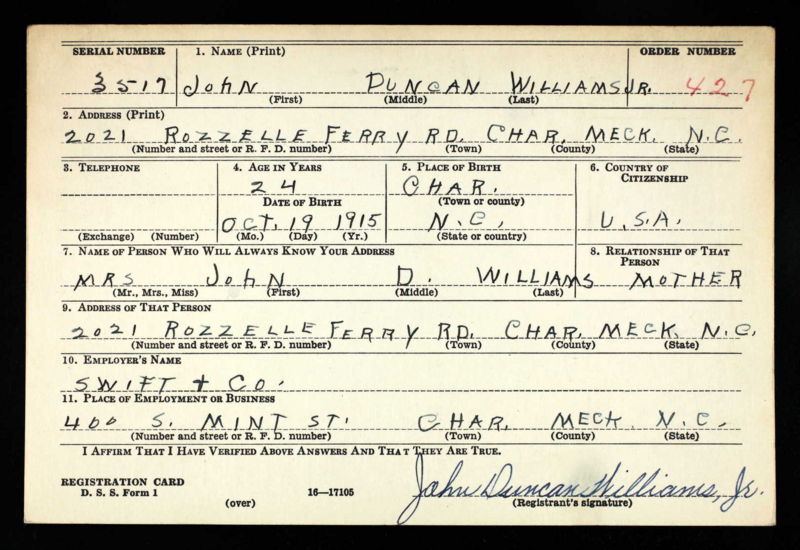 SERIAL NUMBER 1. NAME (Print) ORDER NUMBER
3517 JOHN DUNCAN WILLIAMS JR. 427
(First) (Middle) (Last)
2. ADDRESS (Print)
2021 ROZZELLE FERRY RD. CHAR. MECK. N.C.
(Number and street or R. F. D. number) (Town) (County) (State)
3. TELEPHONE 4. AGE IN YEARS 5. PLACE OF BIRTH 6. COUNTRY OF CITIZENSHIP
24 CHAR.
DATE OF BIRTH (Town or county)
OCT. 19 1915 N.C. U.S.A.
(Exchange) (Number) (Mo.) (Day) (Yr.) (State or country)
7. NAME OF PERSON WHO WILL ALWAYS KNOW YOUR ADDRESS 8. RELATIONSHIP OF THAT PERSON
MRS JOHN D. WILLIAMS MOTHER
(Mr., Mrs., Miss) (First) (Middle) (Last)
9. ADDRESS OF THAT PERSON
2021 ROZZELLE FERRY RD. CHAR. MECK. N.C.
(Number and street or R. F. D. number) (Town) (County) (State)
10. EMPLOYER'S NAME
SWIFT + CO.
11. PLACE OF EMPLOYMENT OR BUSINESS
400 S. MINT ST. CHAR. MECK N.C.
(Number and street or R. F. D. number) (Town) (County) (State)
I AFFIRM THAT I HAVE VERIFIED ABOVE ANSWERS AND THAT THEY ARE TRUE.
REGISTRATION CARD
D. S. S. Form 1 16—17105 John Duncan Williams, Jr.
(over) (Registrant's signature)